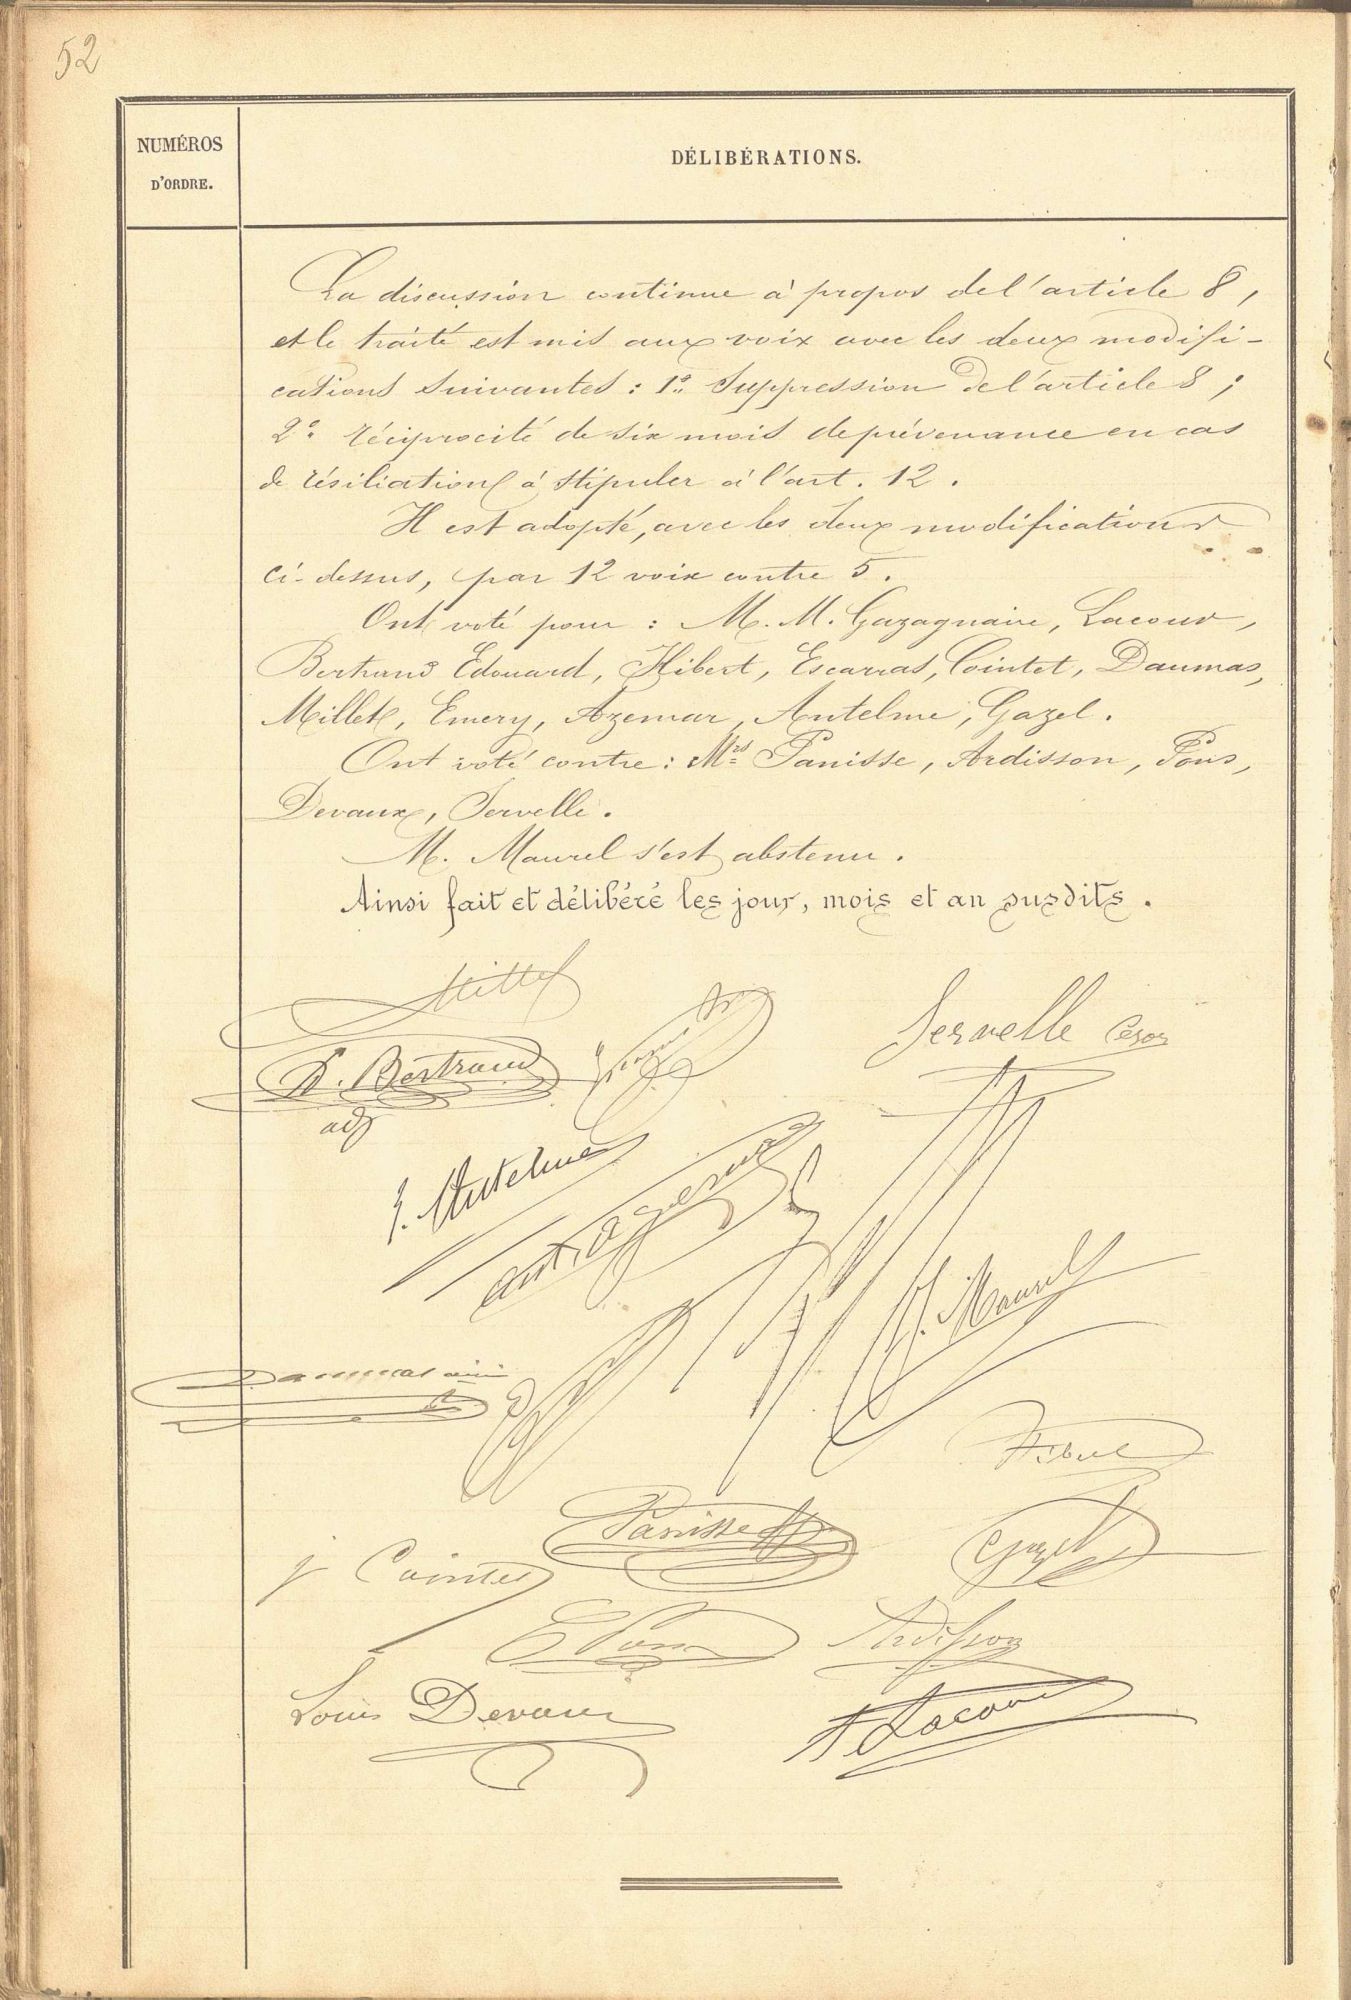 52
NUMÉROS
D'ORDRE.
DÉLIBÉRATIONS.
La discussion continue à propos de l'article 8,
et le traité est mis aux voix avec les deux modifi-
cations suivantes : 1º Suppression de l'article 8 ;
2º réciprocité de six mois de prévenance en cas
de résiliation à stipuler à l'art. 12.
Il est adopté, avec les deux modifications
ci-dessus, par 12 voix contre 5.
Ont voté pour : M. M. Gazagnaire, Lacour,
Bertrand Edouard, Hibert, Escarras, Cointet, Daumas,
Millet, Emery, Azemar, Antelme, Gazel.
Ont voté contre : Mrs Panisse, Ardisson, Pons,
Devaux, Servelle.
M. Maurel s'est abstenu.
Ainsi fait et délibéré les jour, mois et an susdits.
Millet
Servelle Cesar
D. Bertrand
adj
J. Antelme
J. Maurel
Daumas ainé
Hibert
Panisse
Gazel
J Cointet
E Pons
Ardisson
Louis Devaux
F Lacour